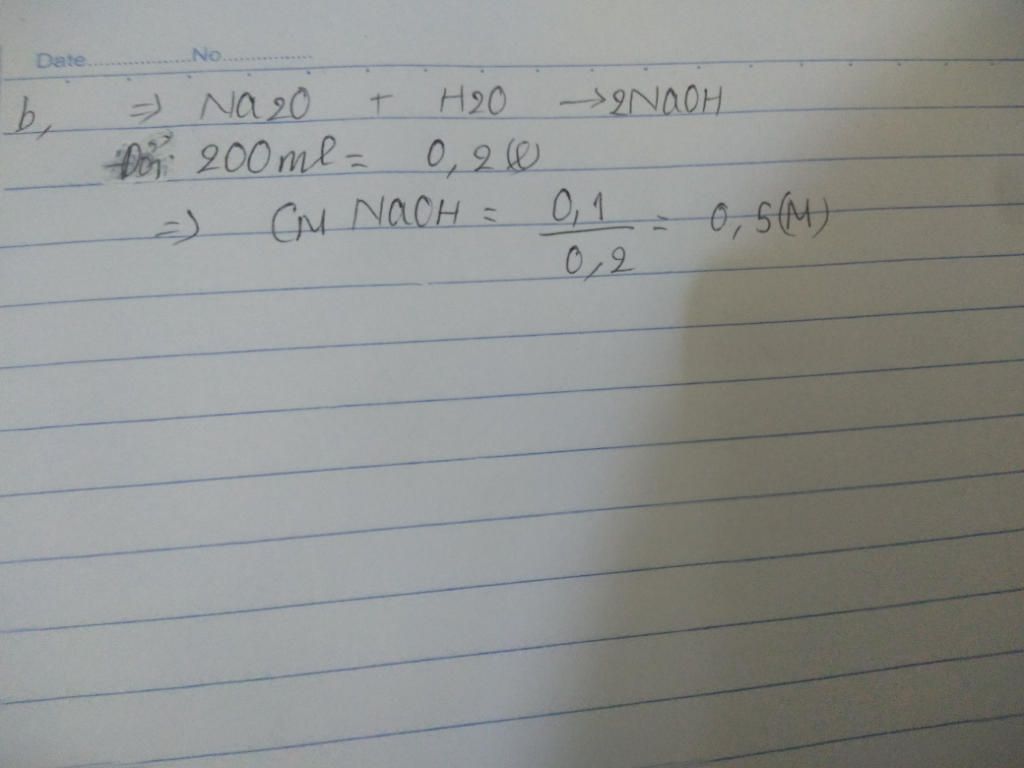 Date................No................
b, => Na2O + H2O →2NaOH
Đổi: 200ml = 0,2(l)
=> CM NaOH = 0,1/0,2 = 0,5(M)